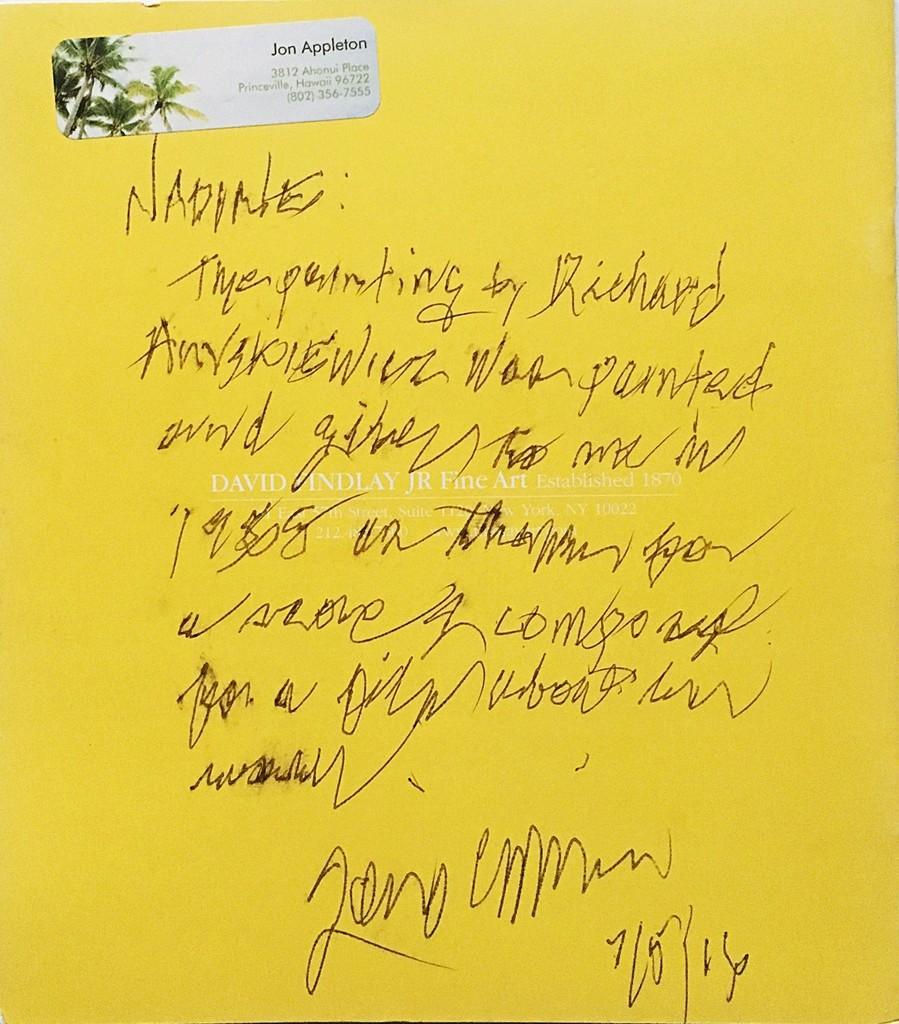 Jon Appleton
3812 Ahonui Place
Princeville, Hawaii 96722
(802) 356-7555
NADINE:
The painting by Richard
ANUSKIEWICZ was painted
and given to me in
DAVID FINDLAY JR Fine Art Established 1870
Street, Suite New York, NY 10022
212
1968 as thanks for
a score I composed
for a film about his
work.
Jon Appleton